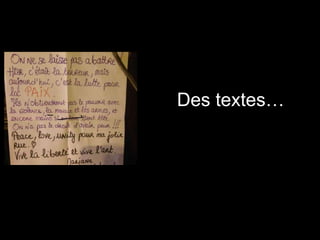 ON NE SE LAISSE PAS ABATTRE
HIER, c'était la terreur, mais
aujourd'hui, c'est la lutte pour
la PAIX.
ILS N'obtiendront pas le pouvoir avec
la violence, la menace et les armes, et
encore moins
On n'a pas le droit d'avoir peur !!!
Peace, love, unity pour ma jolie
rue. ♡
Vive la liberté et vive l'art.
Des textes…